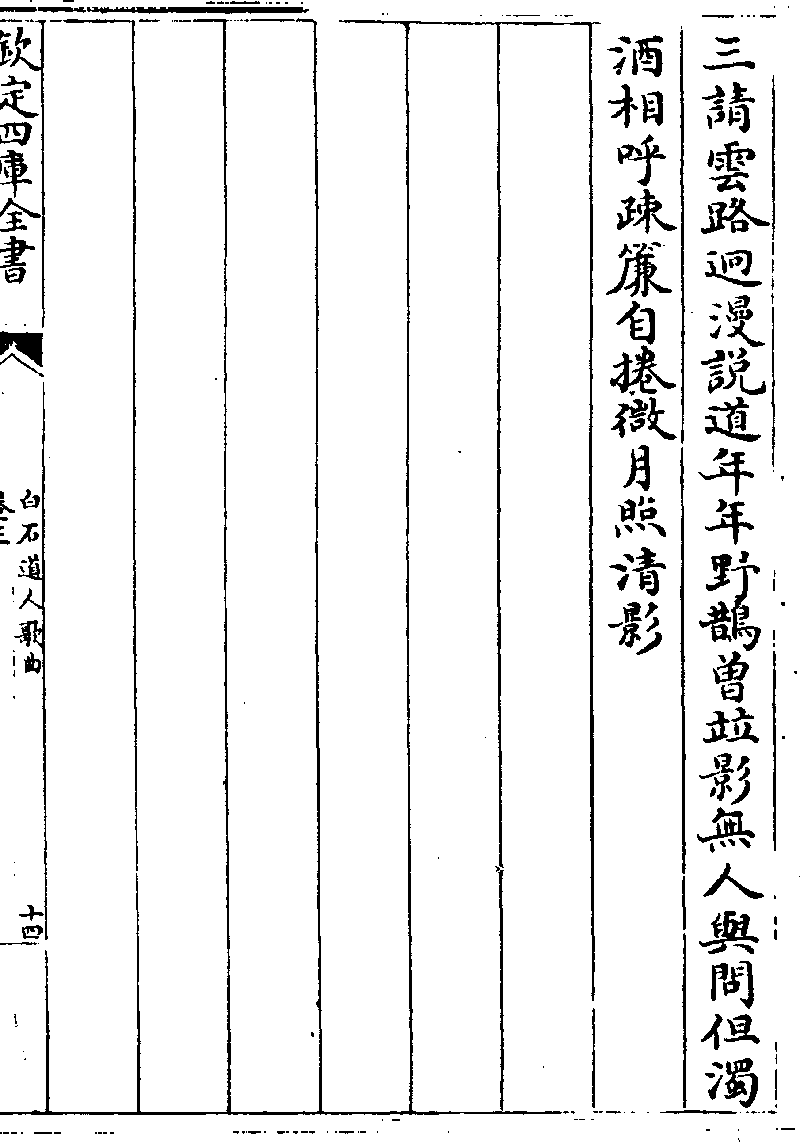 三請雲路迥漫説道年年野鵲曽竝影無人與問但濁
酒相呼疎簾自捲微月照清影
欽定四庫全書
白石道人歌曲
卷三
十四